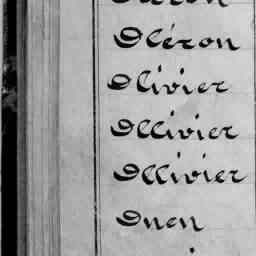 Oléron
Olivier
Ollivier
Ollivier
Onen